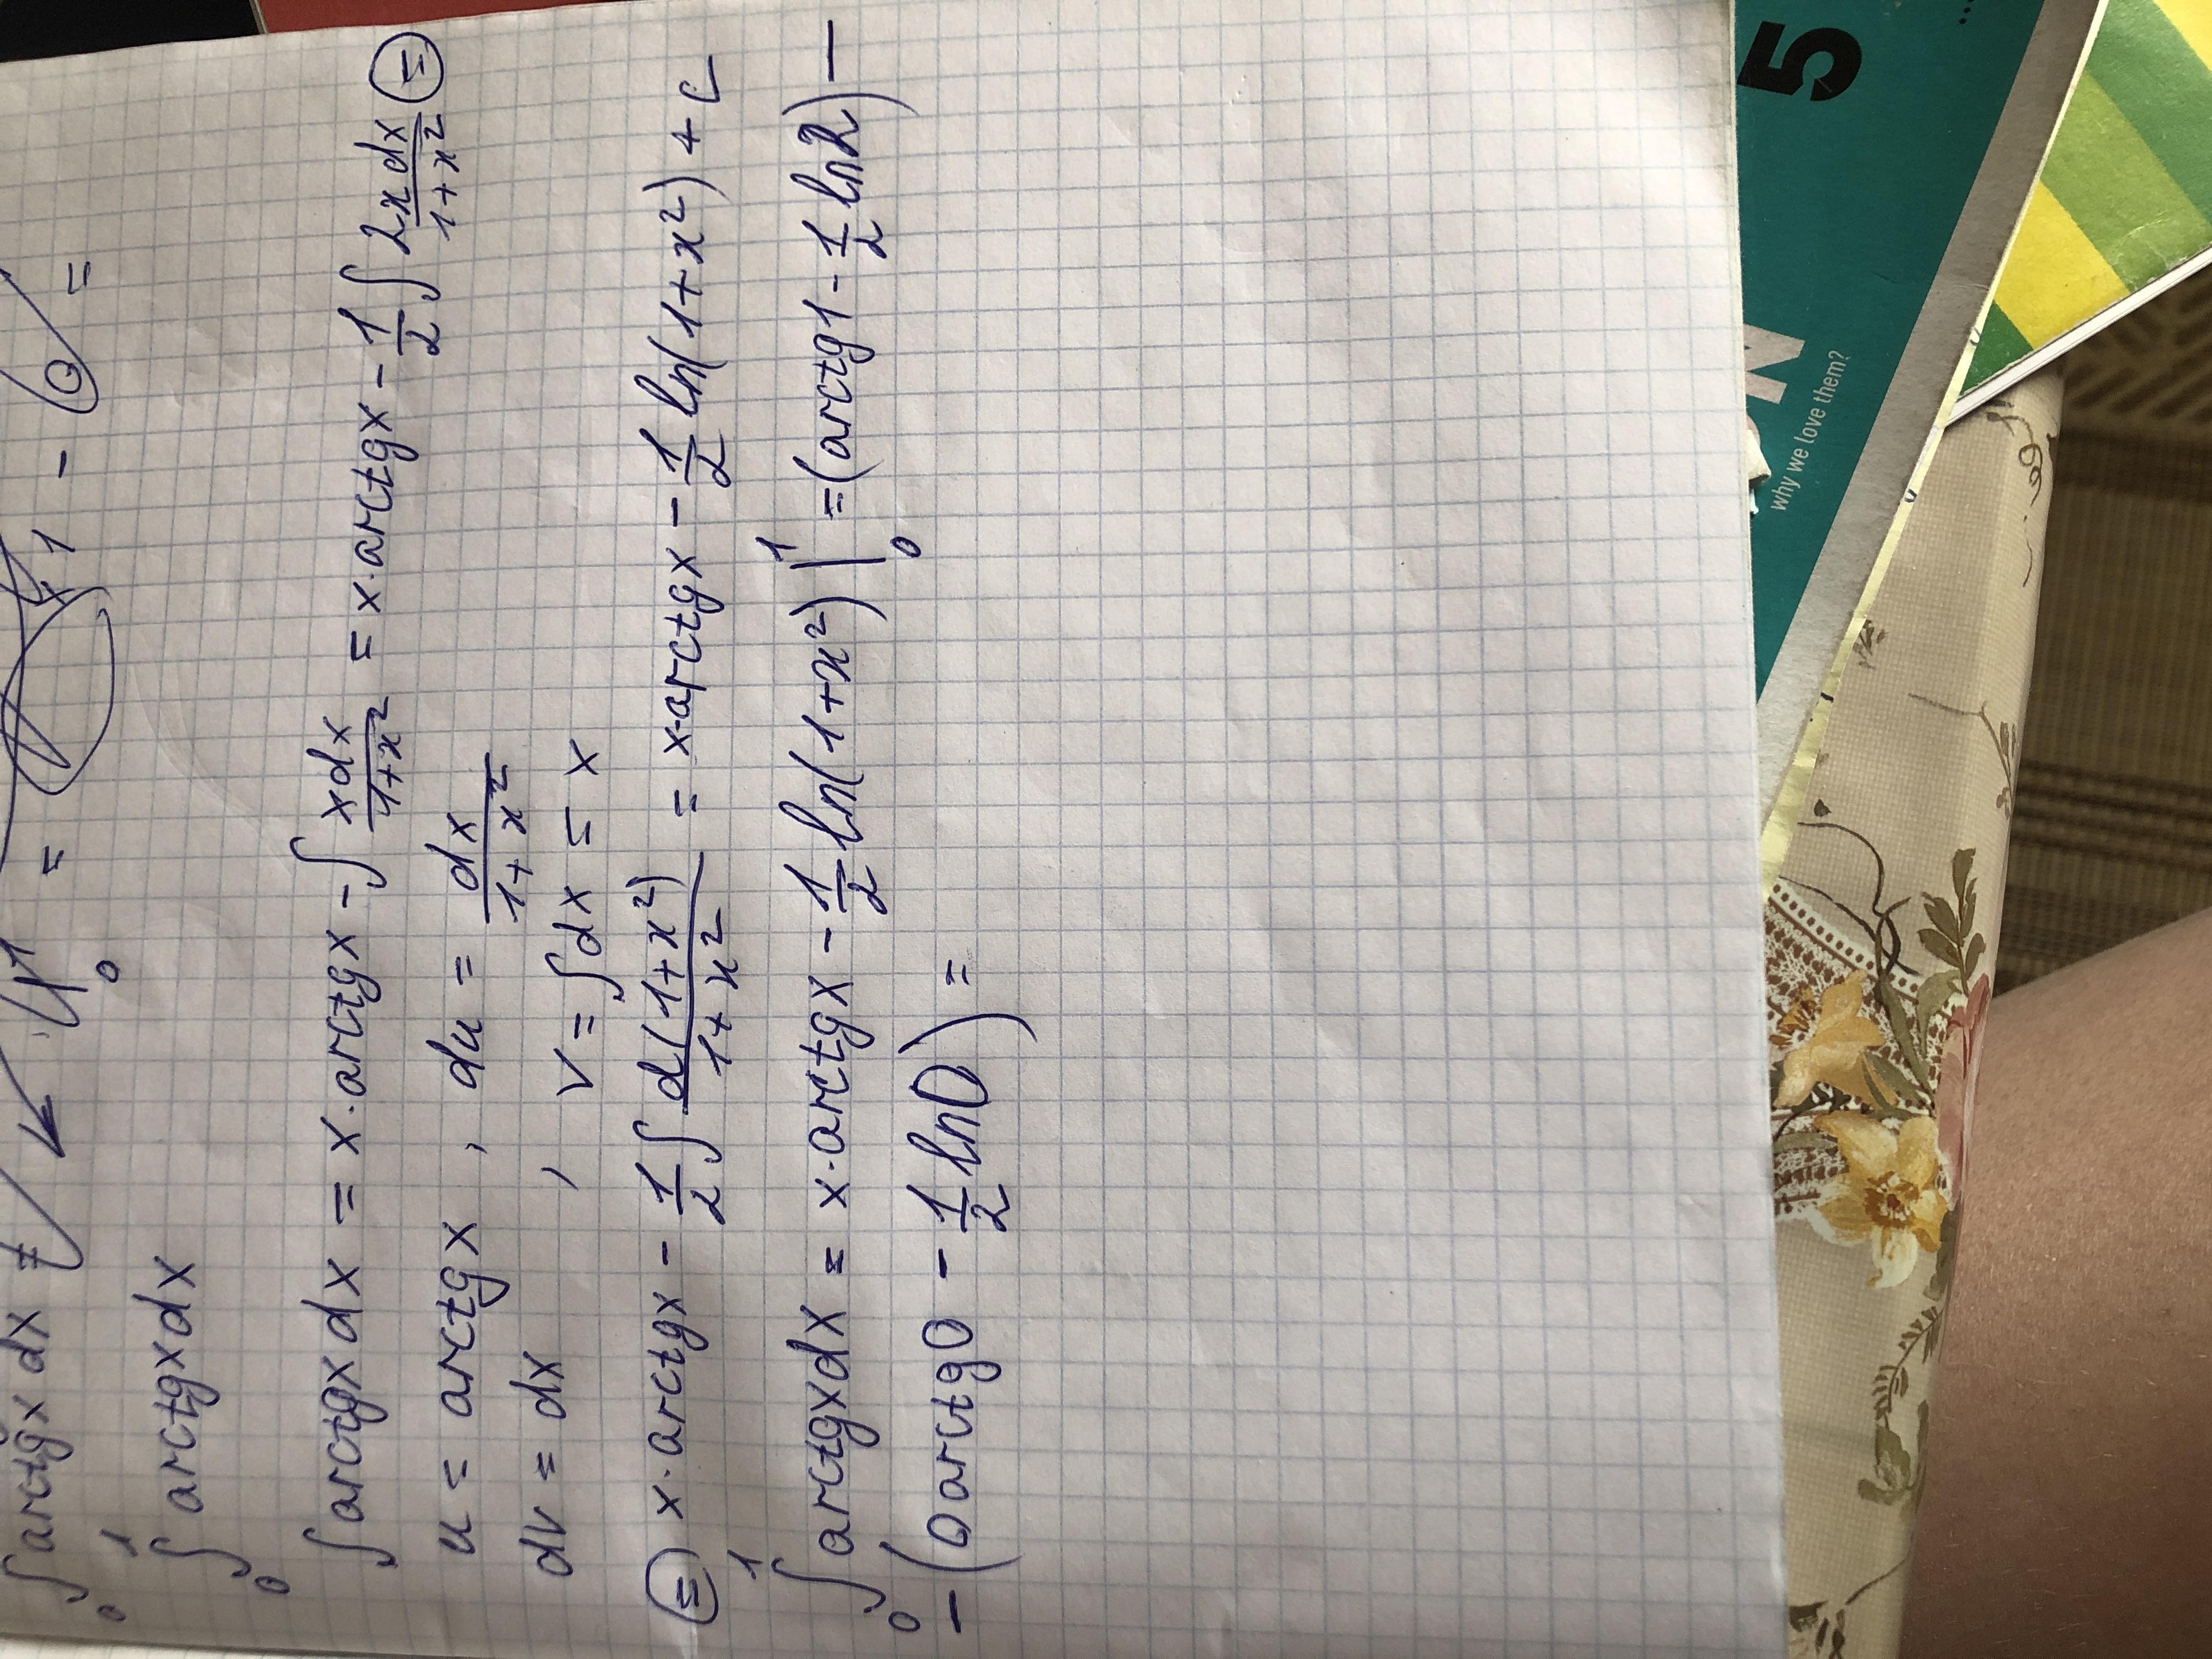 ∫₀ arctgx dx
= 1 - 0 =
∫₀¹ arctgxdx
∫arctgxdx = x·arctgx - ∫ xdx/(1+x²) = x·arctgx - 1/2 ∫ 2xdx/(1+x²) =
u = arctgx , du = dx/(1+x²)
dv = dx , v = ∫dx = x
= x·arctgx - 1/2 ∫ d(1+x²)/(1+x²) = x·arctgx - 1/2 ln(1+x²) + c
∫₀¹ arctgxdx = x·arctgx - 1/2 ln(1+x²) |₀¹ = (arctg1 - 1/2 ln2) -
- (0arctg0 - 1/2 ln0) =
5
N
why we love them?